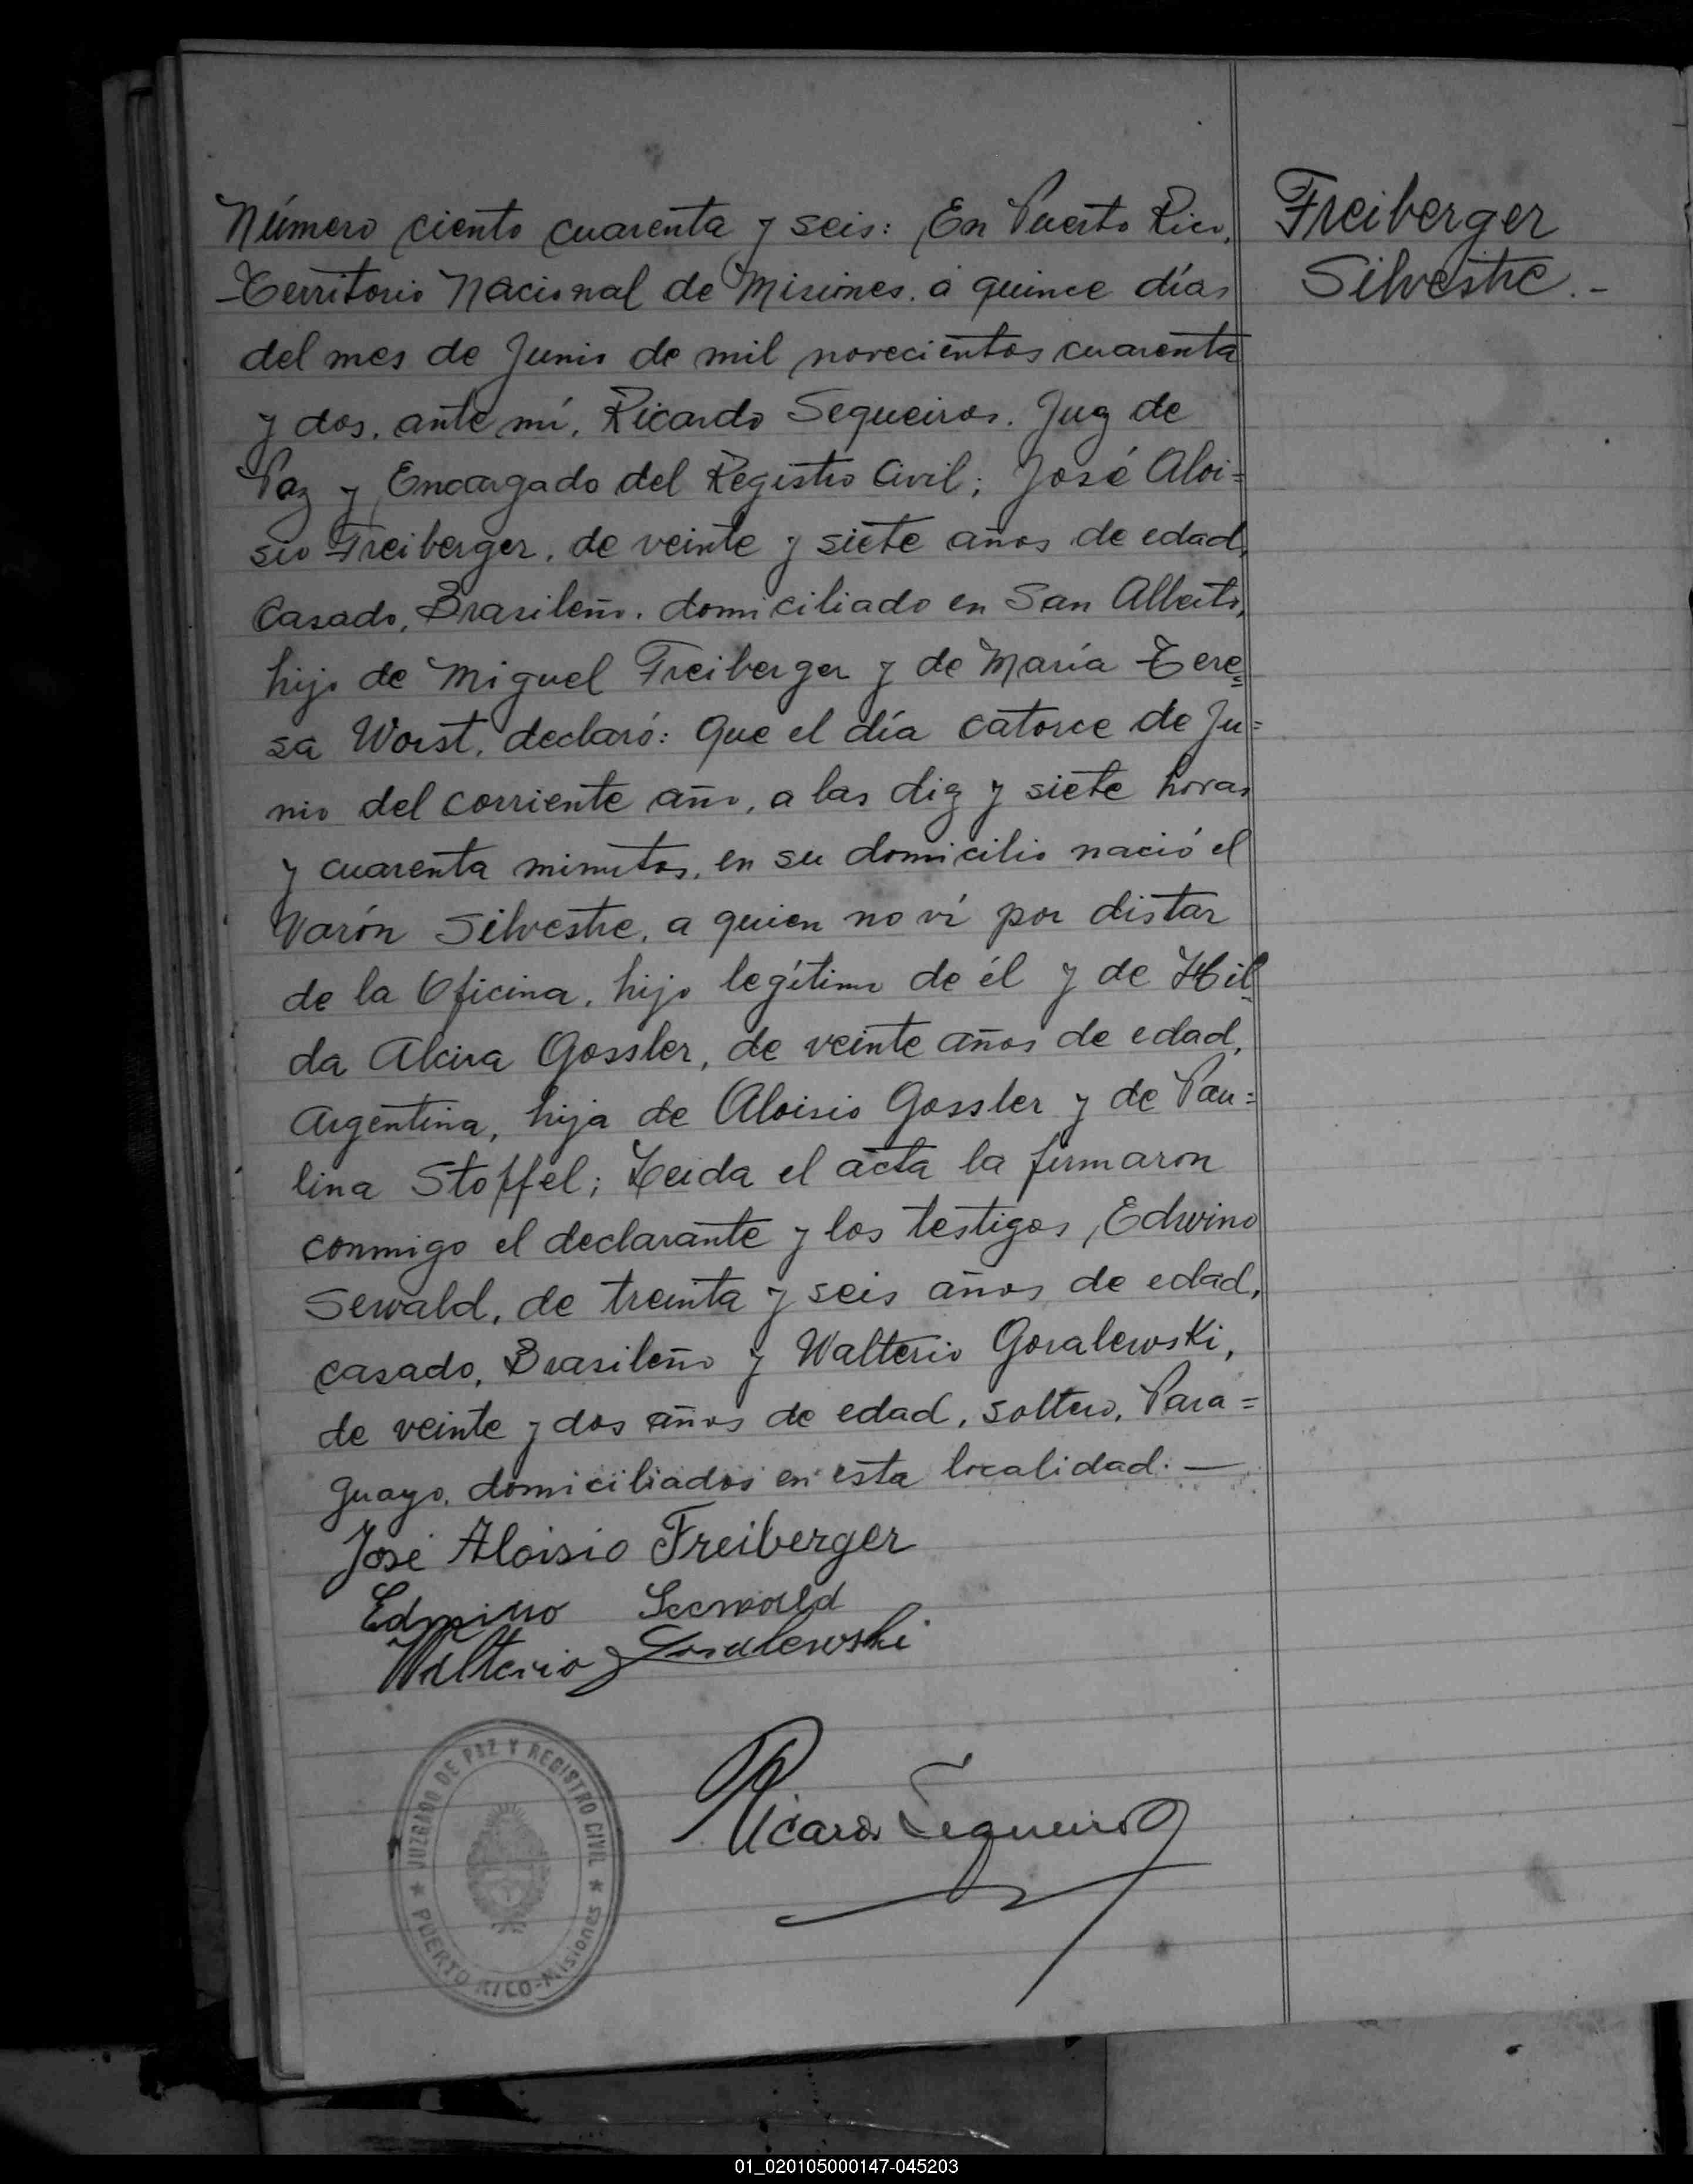 Número ciento cuarenta y seis: En Puerto Rico,
Territorio Nacional de Misiones. a quince días
del mes de Junio de mil novecientos cuarenta
y dos, ante mí, Ricardo Sequeiros. Juez de
Paz y Encargado del Registro Civil; José Aloi=
sio Freiberger, de veinte y siete años de edad,
Casado, Brasileño. domiciliado en San Alberto,
hijo de Miguel Freiberger y de María Tere=
sa Worst, declaró: Que el día catorce de Ju=
nio del corriente año, a las diez y siete horas
y cuarenta minutos, en su domicilio nació el
Varón Silvestre, a quien no ví por distar
de la Oficina, hijo legítimo de él y de Hil=
da Alcira Gossler, de veinte años de edad,
Argentina, hija de Aloisio Gossler y de Pau=
lina Stoffel; Leida el acta la firmaron
conmigo el declarante y los testigos, Edwino
Sewald, de treinta y seis años de edad,
casado, Brasileño y Walterio Goralewski,
de veinte y dos años de edad, soltero, Para=
guayo, domiciliados en esta localidad. —
José Aloisio Freiberger
Edwino Seewald
Walterio Goralewski
Ricardo Sequeiros
JUZGADO DE PAZ Y REGISTRO CIVIL
★ PUERTO RICO-Misiones ★
Freiberger
Silvestre.-
01_020105000147-045203